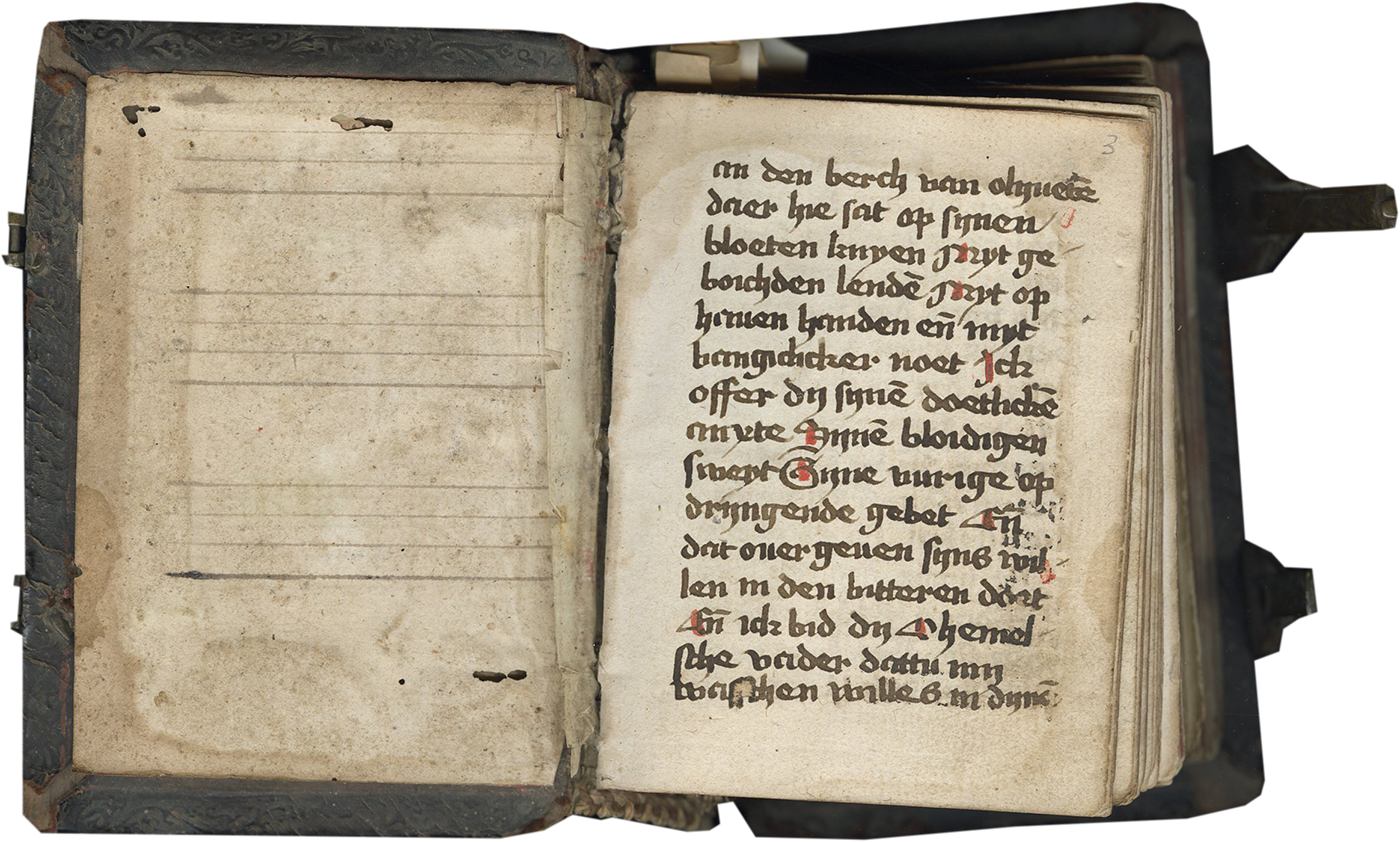 3
an den berch van olyuetē
daer hie sat op synen
bloeten knyen Myt ge
boichden lendē Myt op
hauen handen eñ myt
bangiclicker noet Jck
offer dy synē doetlickē
anxte Synē bloidigen
sweyt Syne vurige op
dryngende gebet Eñ
dat ouergeuen syns wil
len in den bitteren doot
Eñ ick bid dy O hemel
sche vader dattu my
wasschen willes in dynē